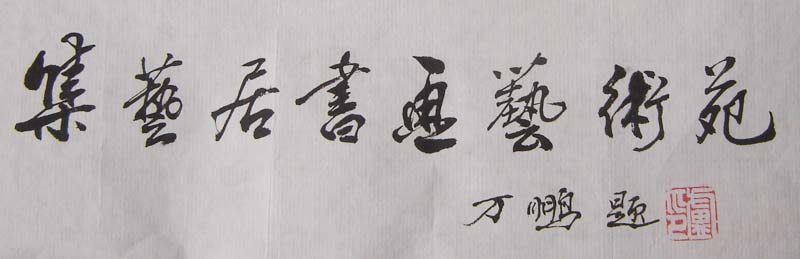 集藝居書画藝術苑
万鹏題